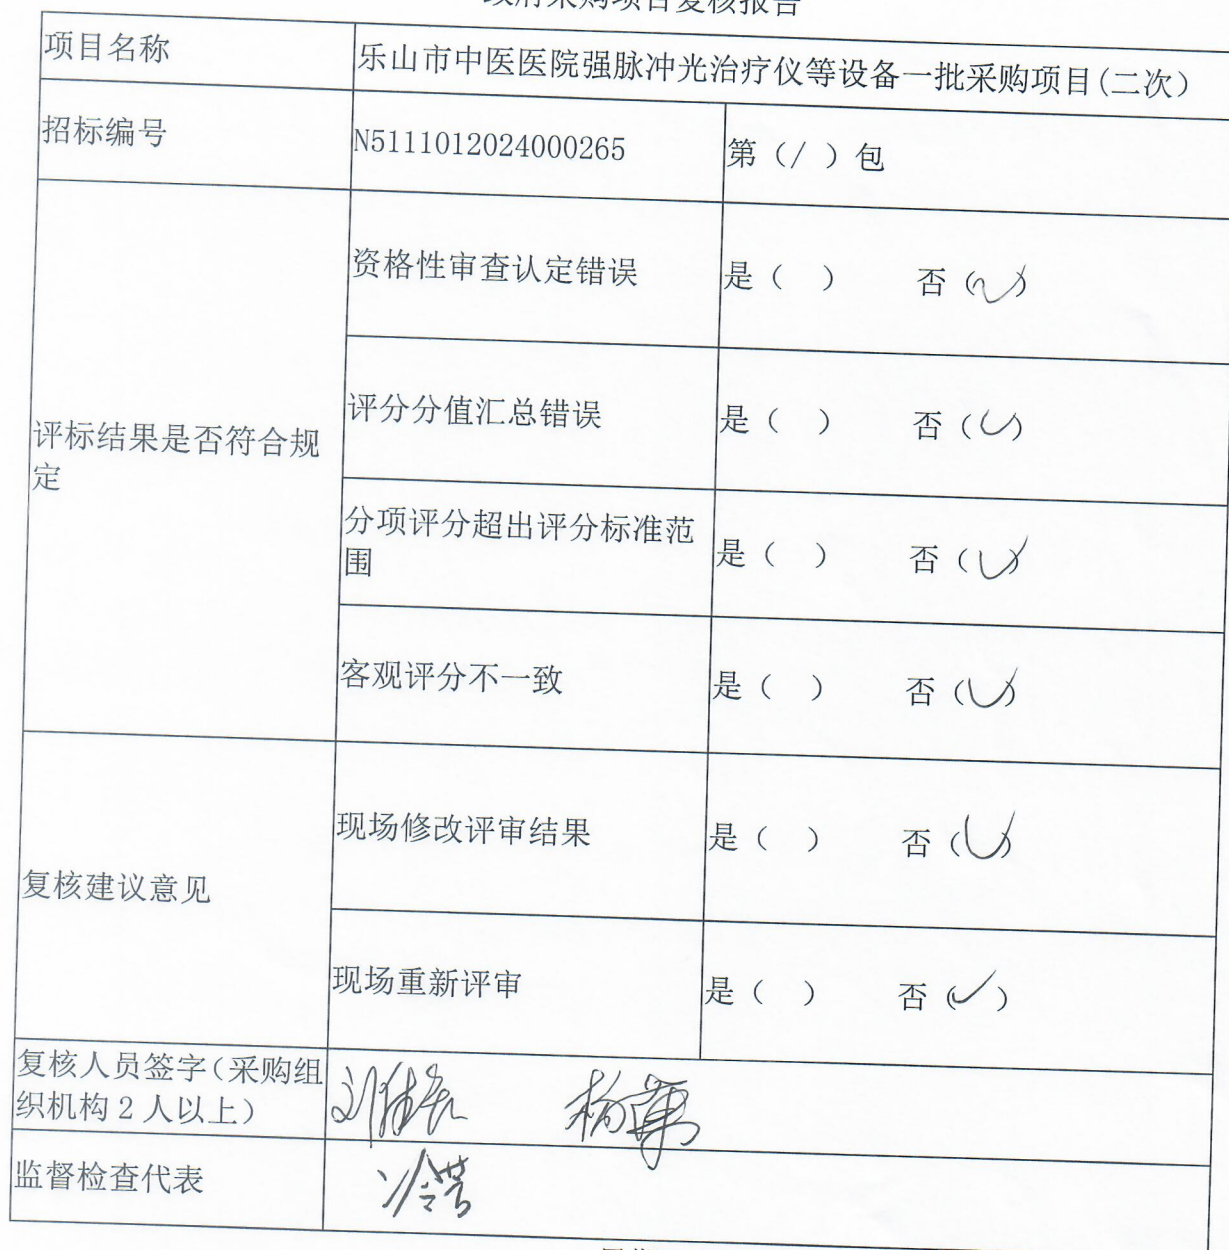 政府采购项目复核报告
项目名称
乐山市中医医院强脉冲光治疗仪等设备一批采购项目(二次)
招标编号
N5111012024000265
第（/ ）包
评标结果是否符合规
定
资格性审查认定错误
是（ ） 否（✓）
评分分值汇总错误
是（ ） 否（✓）
分项评分超出评分标准范
围
是（ ） 否（✓）
客观评分不一致
是（ ） 否（✓）
复核建议意见
现场修改评审结果
是（ ） 否（✓）
现场重新评审
是（ ） 否（✓）
复核人员签字(采购组
织机构2人以上)
监督检查代表